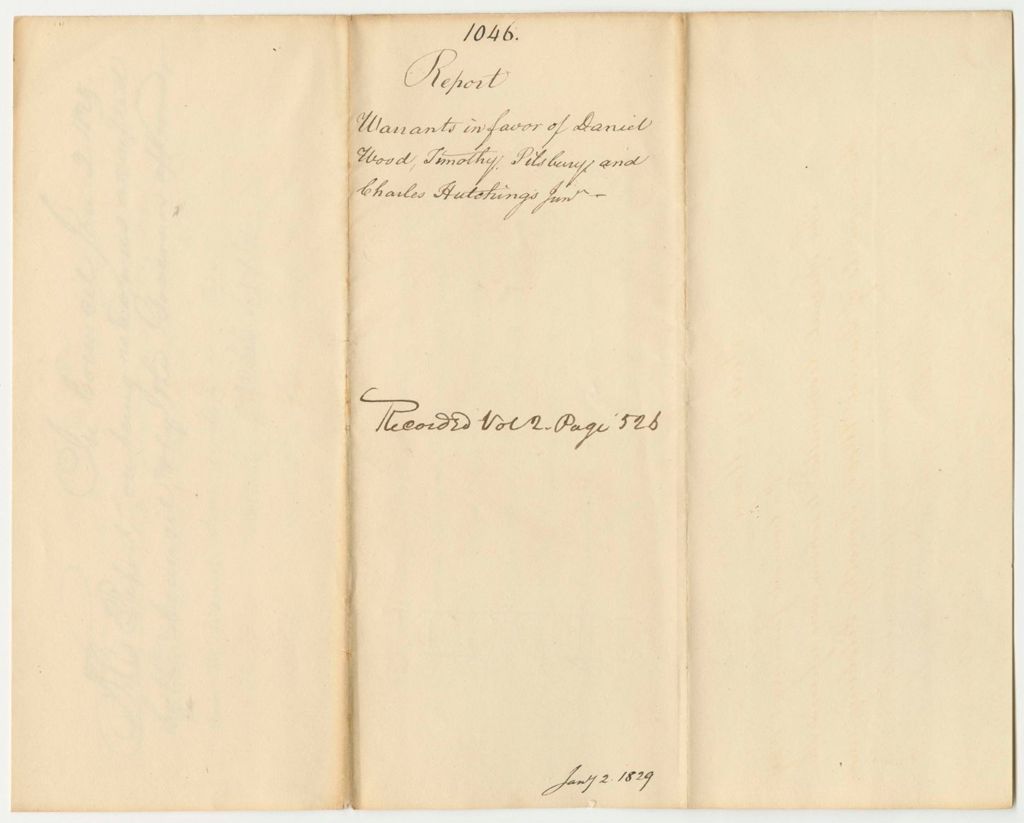 1046.
Report
Warrants in favor of Daniel
Wood, Timothy Pilsbury, and
Charles Hutchings Junr -
Recorded Vol 2. Page 526
Jany 2. 1829